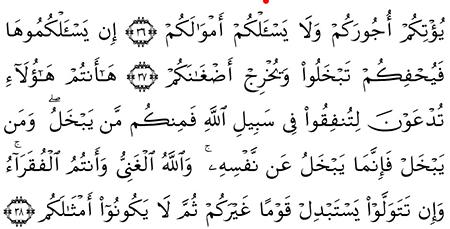 يُؤْتِكُمْ أُجُورَكُمْ وَلَا يَسْـَٔلْكُمْ أَمْوَٰلَكُمْ ﴿٣٦﴾ إِن يَسْـَٔلْكُمُوهَا
فَيُحْفِكُمْ تَبْخَلُوا۟ وَيُخْرِجْ أَضْغَـٰنَكُمْ ﴿٣٧﴾ هَـٰٓأَنتُمْ هَـٰٓؤُلَآءِ
تُدْعَوْنَ لِتُنفِقُوا۟ فِى سَبِيلِ ٱللَّهِ فَمِنكُم مَّن يَبْخَلُ ۖ وَمَن
يَبْخَلْ فَإِنَّمَا يَبْخَلُ عَن نَّفْسِهِۦ ۚ وَٱللَّهُ ٱلْغَنِىُّ وَأَنتُمُ ٱلْفُقَرَآءُ ۚ
وَإِن تَتَوَلَّوْا۟ يَسْتَبْدِلْ قَوْمًا غَيْرَكُمْ ثُمَّ لَا يَكُونُوٓا۟ أَمْثَـٰلَكُم ﴿٣٨﴾